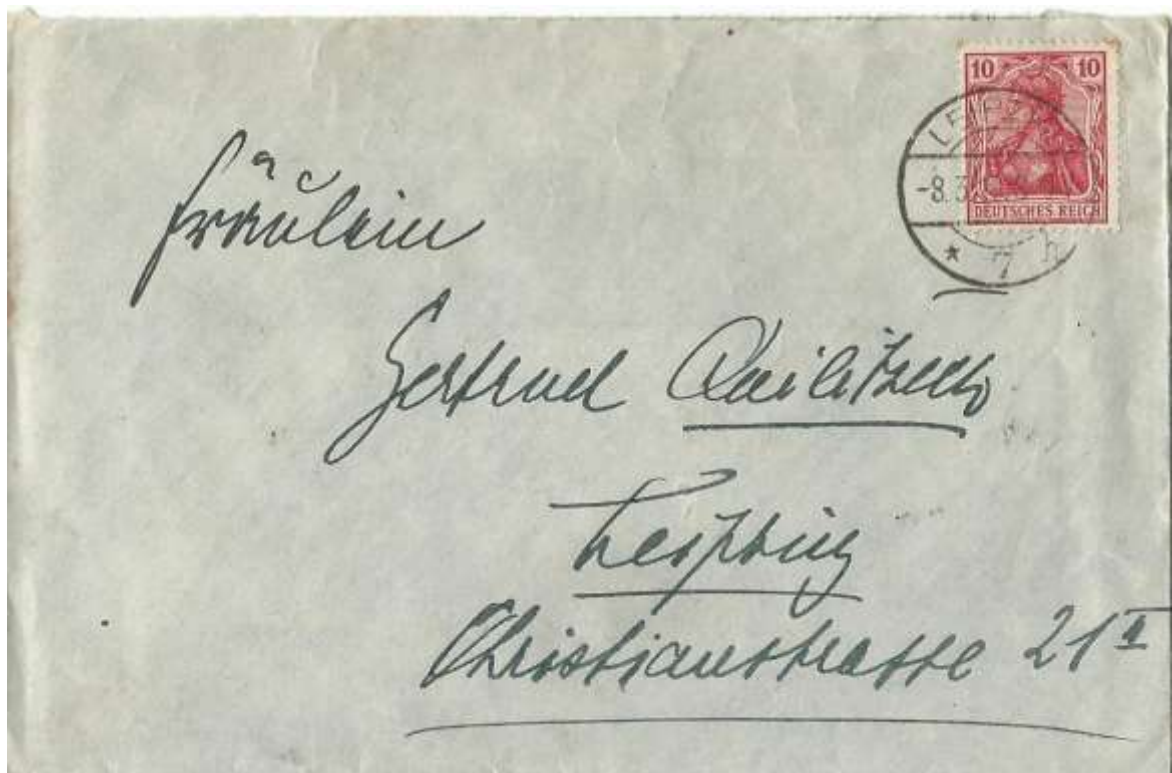 10 10
DEUTSCHES REICH
-8.3
* 7 h
Fräulein
Gertrud
Leipzig
Christianstrasse 21 II